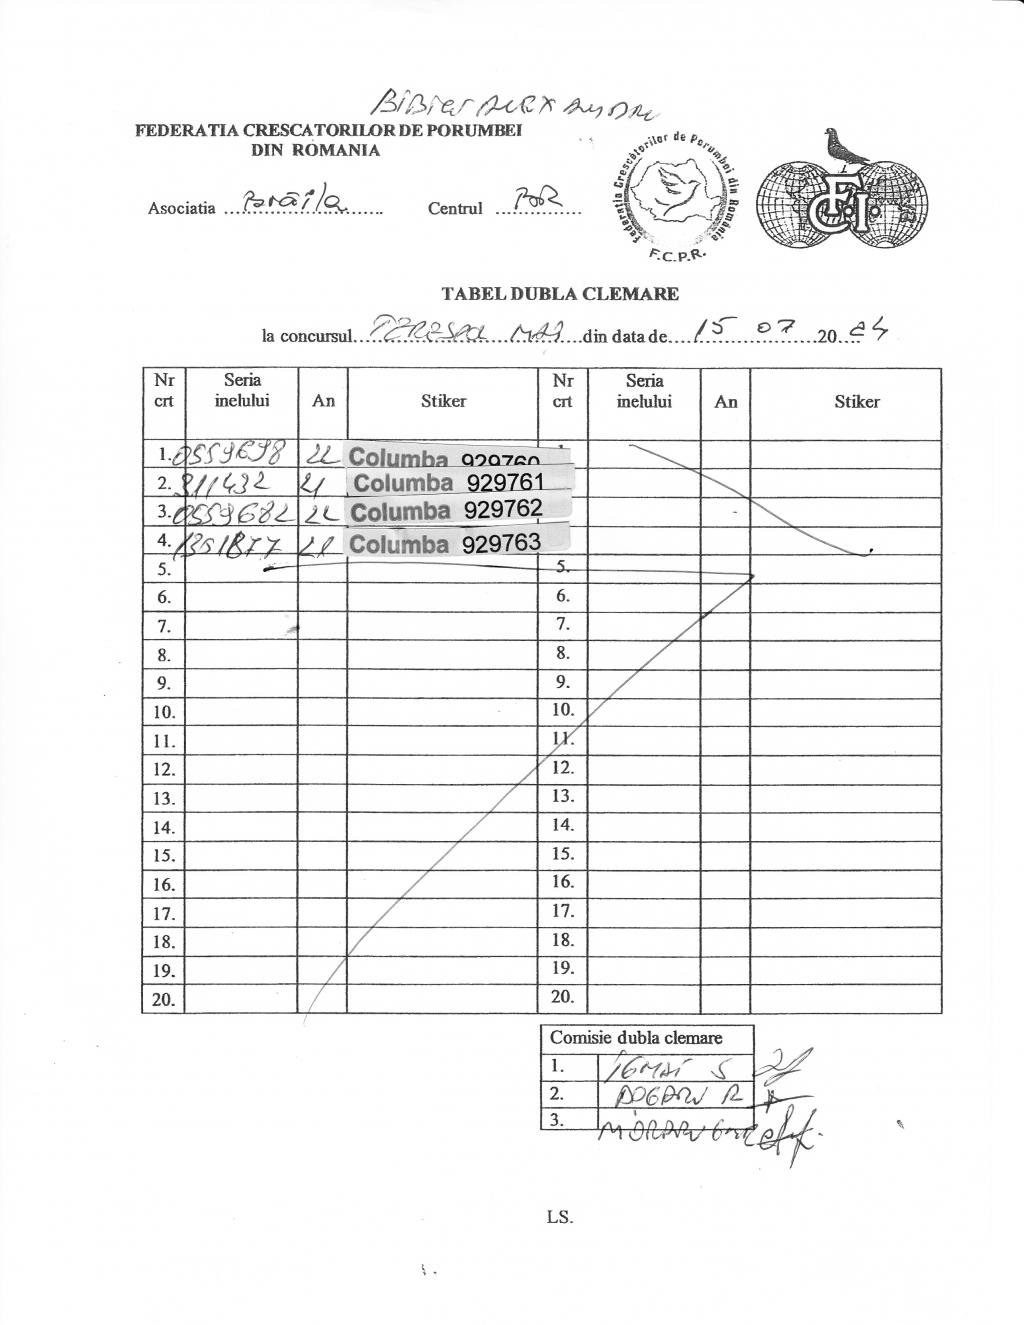 FEDERATIA CRESCATORILOR DE PORUMBEI
DIN ROMANIA
Federatia Crescătorilor de Porumbei din România
F.C.P.R.
F.C.I.
Asociatia Brăila Centrul
TABEL DUBLA CLEMARE
la concursul TERESPOL din data de 15 07 2024
Nr crt Seria inelului An Stiker Nr crt Seria inelului An Stiker
1. 0559698 22 Columba 929760
2. 311432 21 Columba 929761
3. 0559682 22 Columba 929762
4. Columba 929763
5. 5.
6. 6.
7. 7.
8. 8.
9. 9.
10. 10.
11. 11.
12. 12.
13. 13.
14. 14.
15. 15.
16. 16.
17. 17.
18. 18.
19. 19.
20. 20.
Comisie dubla clemare
1. S
2. R
3. MORARU
LS.